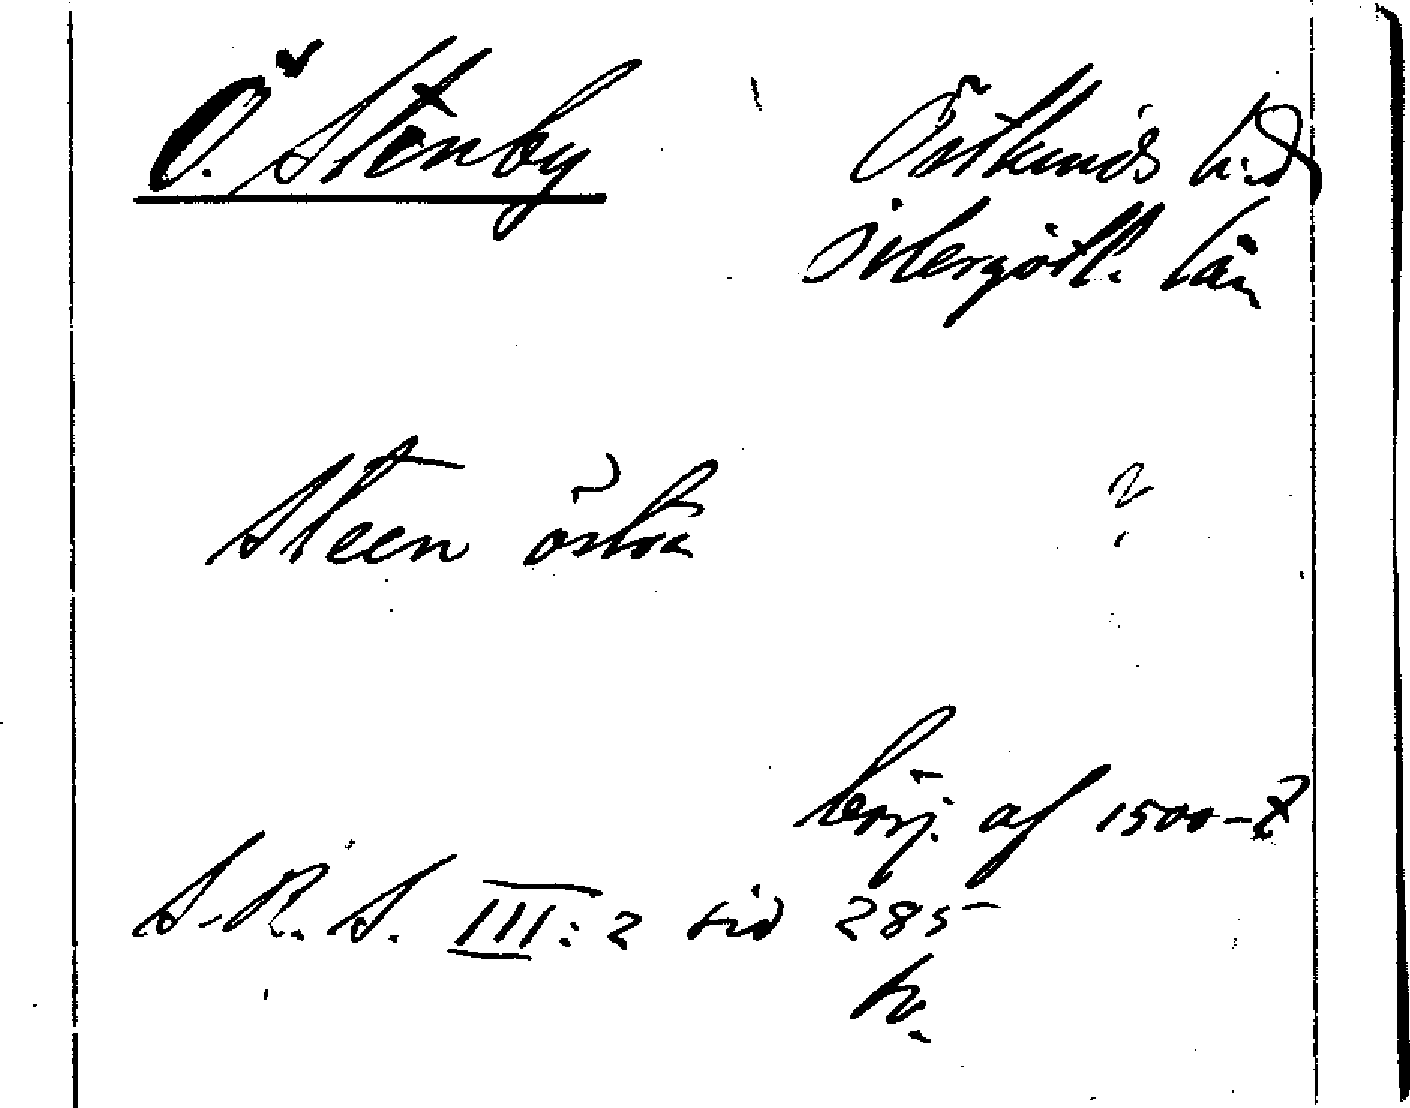 Ö. Stenby Östkinds h:d
Östergötl. län
Steen östra ?
börj. af 1500-t
S. R. S. III: 2 sid 285
h.